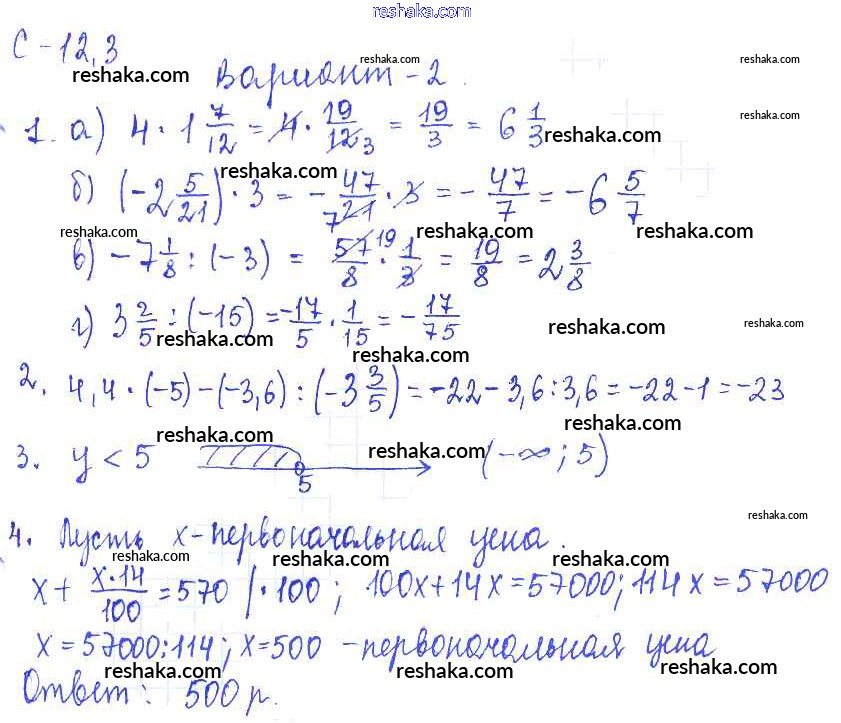 reshaka.com
С-12,3
reshaka.com reshaka.com reshaka.com
Вариант-2.
1. а) 4 · 1 7/12 = 4 · 19/12 3 = 19/3 = 6 1/3 reshaka.com reshaka.com
reshaka.com
б) (-2 5/21) · 3 = - 47/7 21 · 3 = - 47/7 = -6 5/7
reshaka.com reshaka.com reshaka.com
в) -7 1/8 : (-3) = 57 19/8 · 1/3 = 19/8 = 2 3/8
г) 3 2/5 : (-15) = -17/5 · 1/15 = - 17/75 reshaka.com reshaka.com
reshaka.com reshaka.com
2. 4,4 · (-5) - (-3,6) : (-3 3/5) = -22 - 3,6 : 3,6 = -22 - 1 = -23
reshaka.com
3. y < 5 5 reshaka.com (-∞; 5)
reshaka.com
4. Пусть x - первоначальная цена.
reshaka.com reshaka.com
x + x·14/100 = 570 | · 100; 100x + 14x = 57000; 114x = 57000
reshaka.com
x = 57000 : 114; x = 500 - первоначальная цена
reshaka.com reshaka.com reshaka.com
Ответ: 500 р.
reshaka.com